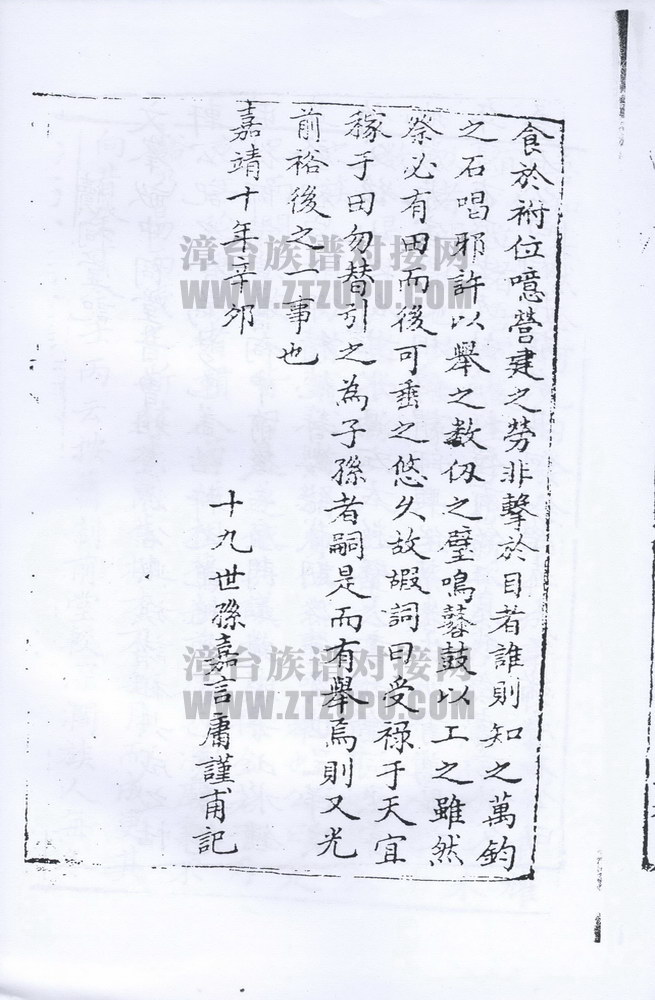 食於祔位噫營建之勞非擊於目者誰則知之萬鈞
之石唱邪許以舉之數仞之璧鳴鼛鼓以工之雖然
祭必有田而後可垂之悠久故嘏詞曰受祿于天宜
稼于田勿替引之為子孫者嗣是而有舉焉則又光
前裕後之一事也
嘉靖十年辛夘
十九世孫嘉言庸謹甫記
漳台族谱对接网
WWW.ZTZUPU.COM
漳台族谱对接网
WWW.ZTZUPU.COM